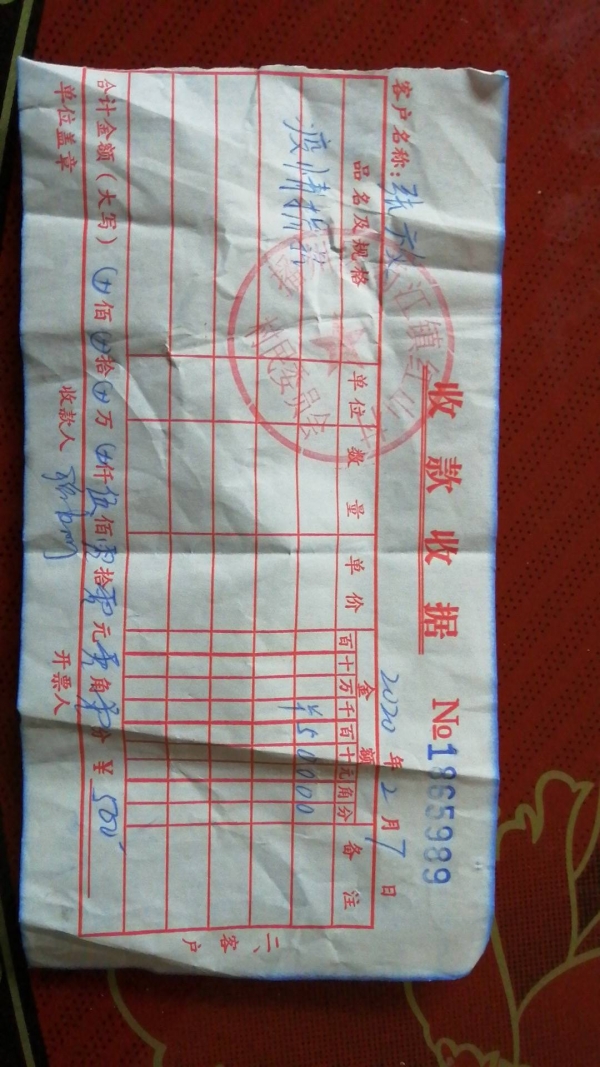 收款收据 №1865989
客户名称：张 2020年2月7日
品名及规格 单位 数量 单价 金额 备注
百十万千百十元角分
疫情捐款 ¥50000
合计金额（大写）⊕佰⊕拾⊕万⊕仟伍佰零拾零元零角零分 ¥500
单位盖章 收款人 开票人
二、客户
江镇红
村民委员会